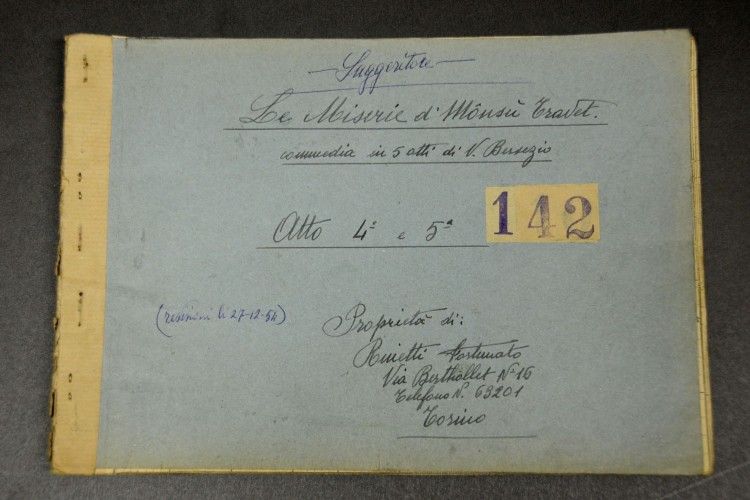 Suggeritore
Le Miserie d' Mônsù Travet.
commedia in 5 atti di V. Bersezio
Atto 4º e 5º
142
li 27-12-54)
Proprietà di:
Rinetti Fortunato
Via Berthollet Nº 16
Telefono N. 63201
Torino